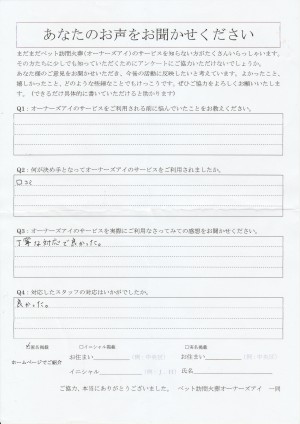 あなたのお声をお聞かせください
まだまだペット訪問火葬(オーナーズアイ)のサービスを知らない方がたくさんいらっしゃいます。
その方たちに少しでも知っていただくためにアンケートにご協力いただけないでしょうか。
あなた様のご意見をお聞かせいただき、今後の活動に反映したいと考えています。よかったこと、
嬉しかったこと、どのような些細なことでもけっこうです。ぜひご協力をよろしくお願いいたしま
す。(できるだけ具体的に書いていただけると助かります)
Q1:オーナーズアイのサービスをご利用される前に悩んでいたことをお教えください。
Q2:何が決め手となってオーナーズアイのサービスをご利用されましたか。
口コミ
Q3:オーナーズアイのサービスを実際にご利用なさってみての感想をお聞かせください。
丁寧な対応で良かった。
Q4:対応したスタッフの対応はいかがでしたか。
良かった。
匿名掲載 □イニシャル掲載 □実名掲載
ホームページでご紹介
お住まい お住まい
イニシャル 氏名
ご協力、本当にありがとうございました。 ペット訪問火葬オーナーズアイ 一同